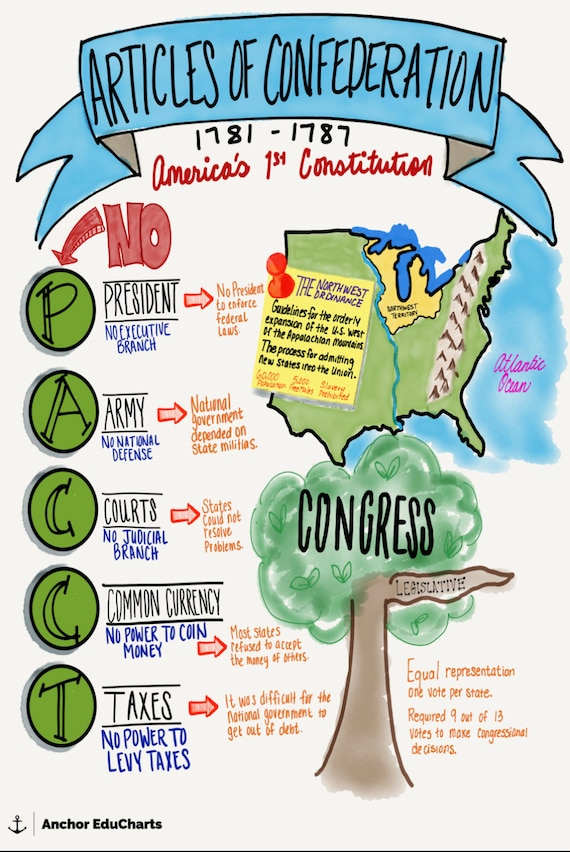 ARTICLES OF CONFEDERATION
1781 - 1787
America's 1st Constitution
NO
P
PRESIDENT
NO EXECUTIVE
BRANCH
No President
to enforce
federal
laws.
A
ARMY
NO NATIONAL
DEFENSE
National
government
depended on
State militias.
C
COURTS
NO JUDICIAL
BRANCH
States
could not
resolve
Problems.
C
COMMON CURRENCY
NO POWER TO COIN
MONEY
Most states
refused to accept
the money of others.
T
TAXES
NO POWER TO
LEVY TAXES
It was difficult for the
national government to
get out of debt.
THE NORTHWEST
ORDINANCE
Guidelines for the orderly
expansion of the U.S. west
of the Appalachian mountains.
The process for admitting
new States into the Union.
60,000
Population
5,000
Free Males
Slavery
Prohibited
NORTHWEST
TERRITORY
Atlantic
Ocean
CONGRESS
LEGISLATIVE
Equal representation
one vote per state.
Required 9 out of 13
votes to make Congressional
decisions.
Anchor EduCharts